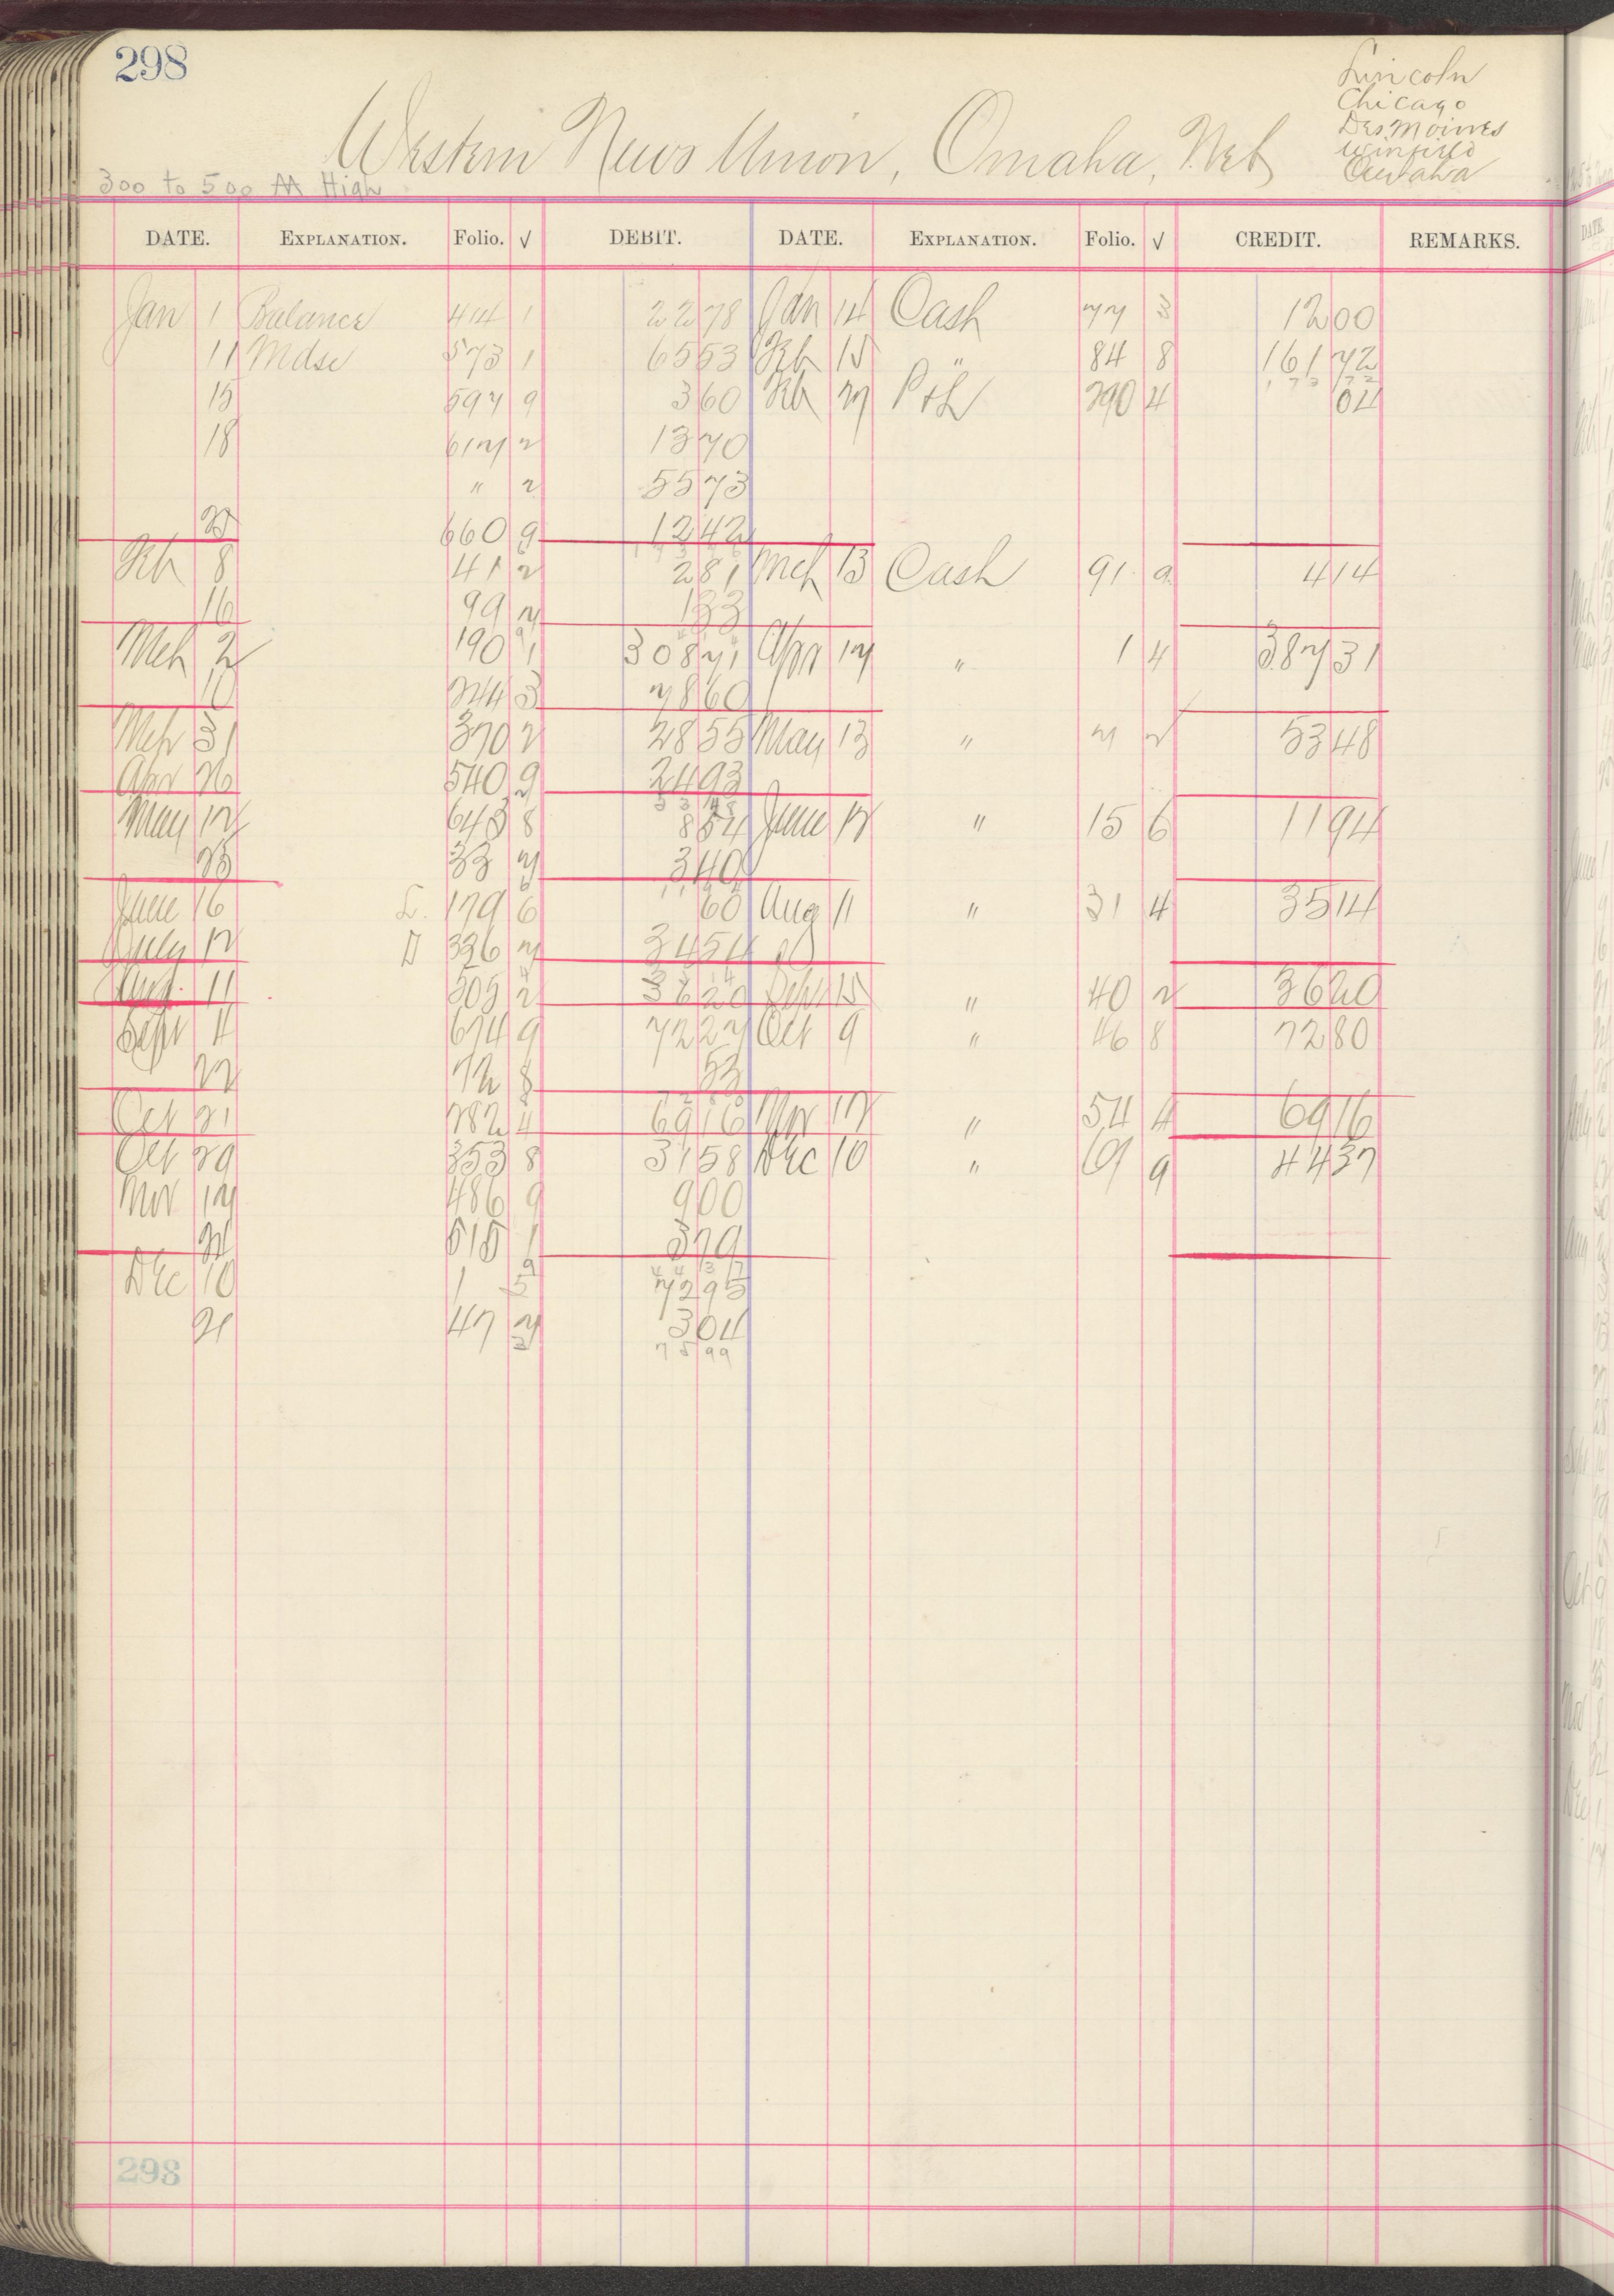 298
Lincoln
Chicago
Des Moines
Winfield
Western News Union, Omaha, Neb
300 to 500 AA High
DATE. EXPLANATION. Folio. √ DEBIT. DATE. EXPLANATION. Folio. √ CREDIT. REMARKS.
Jan 1 Balance 414 1 22 78 Jan 14 Cash 77 3 12 00
11 Mdse 573 1 65 53 Feb 15 " 84 8 161 72
15 597 9 3 60 Feb 27 P+L 290 4 04
18 617 2 13 70
" 2 55 73
660 9 12 42
Feb 8 41 2 2 81 Mch 13 Cash 91 9 4 14
16 99 7 1 33
Mch 2 190 1 308 71 Apr 17 " 1 4 387 31
11 244 3 78 60
Mch 31 370 2 28 55 May 13 " 7 2 53 48
Apr 26 540 9 24 93
53 48
May 12 643 8 8 54 June 12 " 15 6 11 94
25 33 7 3 40
June 16 L. 179 6 60 Aug 11 " 31 4 35 14
July 12 D 336 7 34 54
Aug. 11 505 2 36 20 Sept 15 " 40 2 36 20
Sept 4 674 9 72 27 Oct 9 " 46 8 72 80
22 72 8 53
Oct 21 282 4 69 16 Nov 12 " 54 4 69 16
Oct 29 353 8 31 58 Dec 10 " 61 9 44 37
Nov 17 486 9 9 00
21 515 1 3 79
44 37
Dec 10 1 5 72 95
21 47 7 3 04
75 99
298